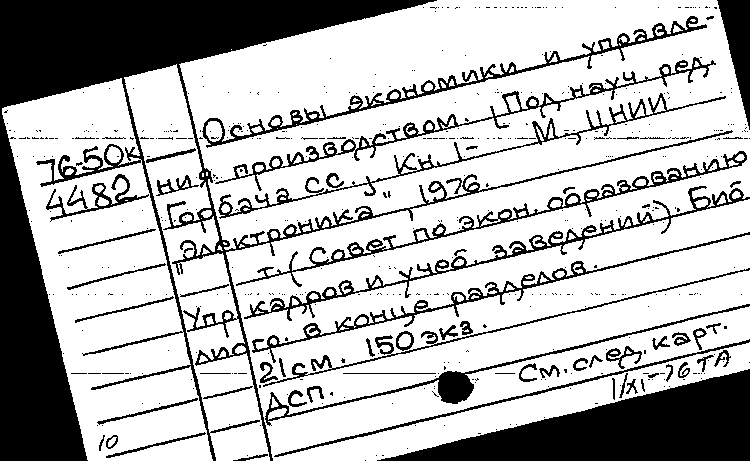 76-50к
4482
Основы экономики и управле-
ния производством. [Под науч. ред.
Горбача С.С.]. Кн. 1- М., ЦНИИ
"Электроника", 1976.
т. (Совет по экон. образованию
Упр. кадров и учеб. заведений). Биб
лиогр. в конце разделов.
21 см. 150 экз.
ДСП.
См. след. карт.
1/XI-76 ТА
10